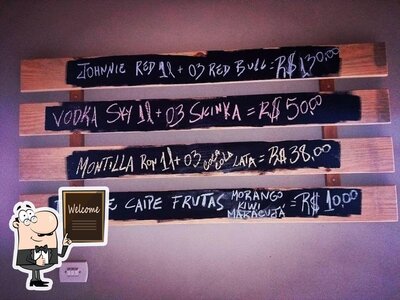 JOHNNIE RED 1L + 03 RED BULL = R$ 130,00
VODKA SKY 1L + 03 SKINKA = R$ 50,00
MONTILLA RON 1L + 03 COCA COLA LATA = R$ 38,00
CAIPE FRUTAS MORANGO KIWI MARACUJÁ = R$ 10,00
Welcome